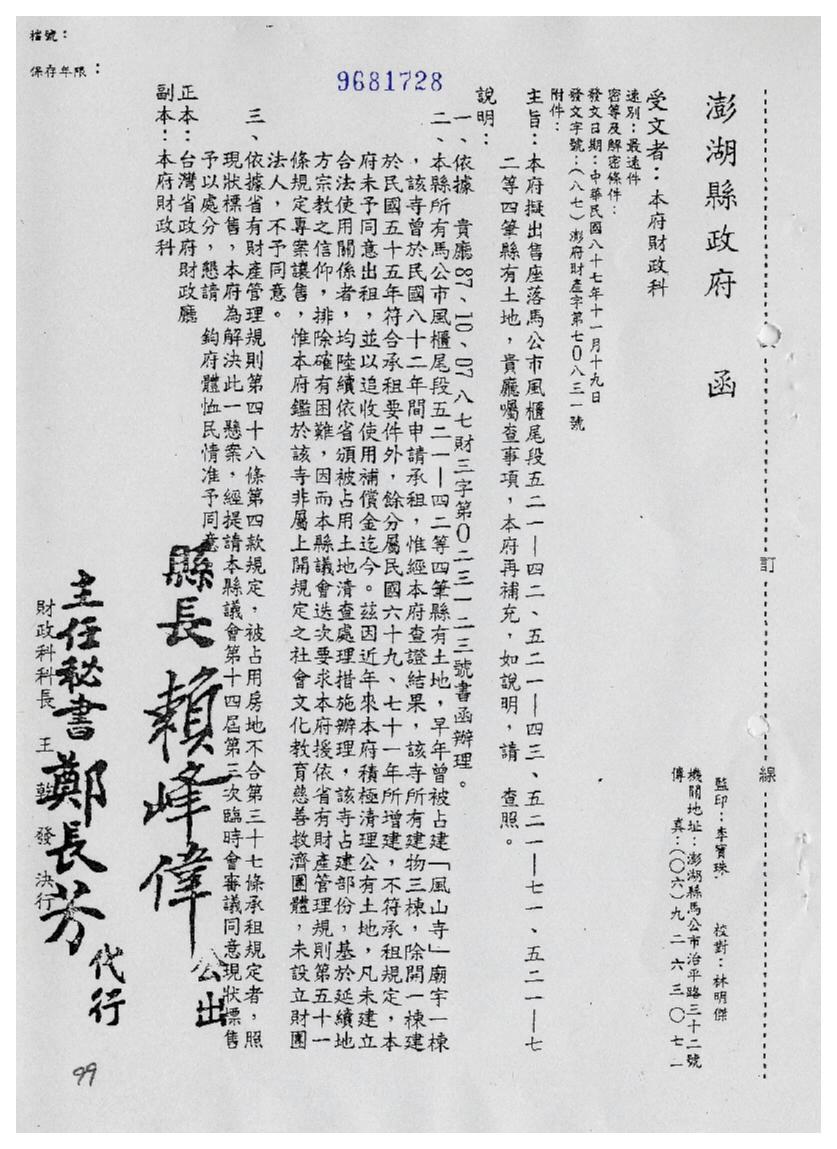 檔號：
保存年限：
9681728
澎湖縣政府　函
受文者：本府財政科
速別：最速件
密等及解密條件：
發文日期：中華民國八十七年十一月十九日
發文字號：(八七)澎府財產字第七０八三一號
附件：
監印：李寶珠　校對：林明傑
機關地址：澎湖縣馬公市治平路三十二號
傳　真：(〇六)九二六三〇七二
主旨：本府擬出售座落馬公市風櫃尾段五二一—四二、五二一—四三、五二一—七一、五二一—七
二等四筆縣有土地，貴廳囑查事項，本府再補充，如說明，請　查照。
說明：
一、依據　貴廳87、10、07八七財三字第０二三一二三號書函辦理。
二、本縣所有馬公市風櫃尾段五二一—四二等四筆縣有土地，早年曾被占建「風山寺」廟宇一棟
，該寺曾於民國八十二年間申請承租，惟經本府查證結果，該寺所有建物三棟，除開一棟建
於民國五十五年符合承租要件外，餘分屬民國六十九、七十一年所增建，不符承租規定，本
府未予同意出租，並以追收使用補償金迄今。茲因近年來本府積極清理公有土地，凡未建立
合法使用關係者，均陸續依省頒被占用土地清查處理措施辦理，該寺占建部份，基於延續地
方宗教之信仰，排除確有困難，因而本縣議會迭次要求本府援依省有財產管理規則第五十一
條規定專案讓售，惟本府鑑於該寺非屬上開規定之社會文化教育慈善救濟團體，未設立財團
法人，不予同意。
三、依據省有財產管理規則第四十八條第四款規定，被占用房地不合第三十七條承租規定者，照
現狀標售，本府為解決此一懸案，經提請本縣議會第十四屆第三次臨時會審議同意現狀標售
予以處分，懇請　鈞府體恤民情准予同意。
正本：台灣省政府財政廳
副本：本府財政科
縣長賴峰偉公出
主任秘書鄭長芳代行
財政科科長　王　發　決行
訂
線
99